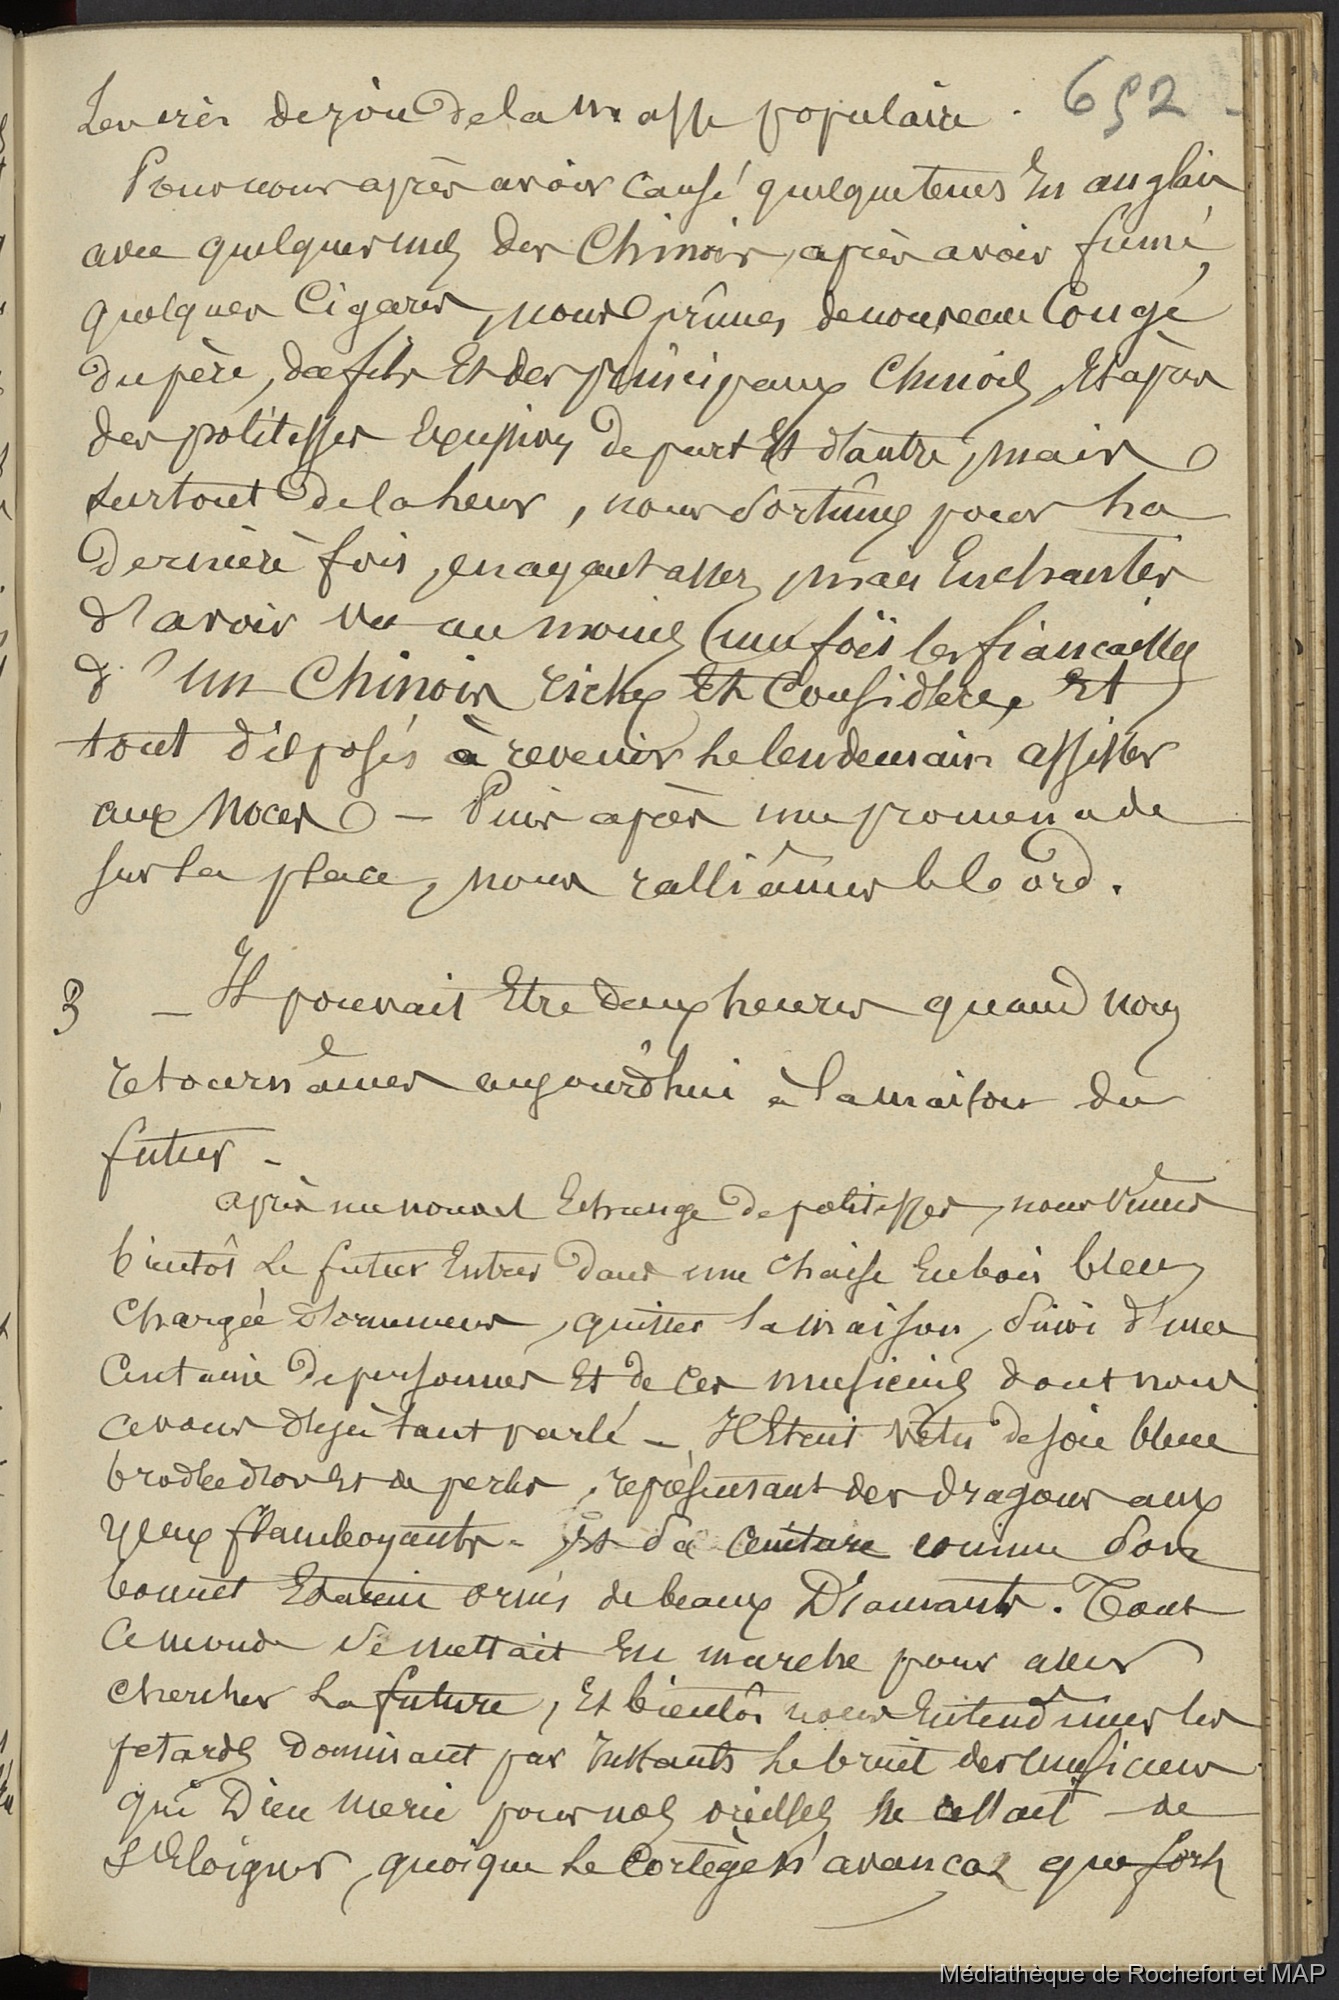 les cris de joie de la masse populaire. 652
Pour nous après avoir causé quelque temps En anglais
avec quelques uns des Chinois, après avoir fumé
quelques Cigares, nous prîmes de nouveau Congé
du père, du fils Et des principaux Chinois, Et après
des politesses de part Et d'autre, mais
surtout de la leur, nous sortîmes pour la
Dernière fois, en ayant assez, mais Enchantés
d'avoir vu au moins une fois les fiançailles
d'un Chinois riche Et Considéré, Et
tout disposés à revenir le lendemain assister
aux Noces — Puis après une promenade
sur la place, nous ralliâmes le bord.
3 — Il pouvait Etre deux heures quand nous
retournâmes aujourd'hui à la maison du
futur -
après un nouvel Echange de politesses, nous vîmes
bientôt le futur Entrer dans une chaise En bois bleu,
chargée d'ornements, quitter la maison, suivi d'une
Centaine de personnes Et de ces musiciens dont nous
avons déjà tant parlé — Il Etait vêtu de soie bleue
brodée d'or Et de perles, représentant des dragons aux
yeux flamboyants - Et sa ceinture comme son
bonnet Etaient ornés de beaux Diamants. Tout
Ce monde se mettait En marche pour aller
chercher la future, Et bientôt nous Entendîmes les
petards Dominant par Instants le bruit des musiciens
qui Dieu merci pour nos oreilles ne cessait de
s'Eloigner, quoique le Cortège n'avançat que fort
Médiathèque de Rochefort et MAP